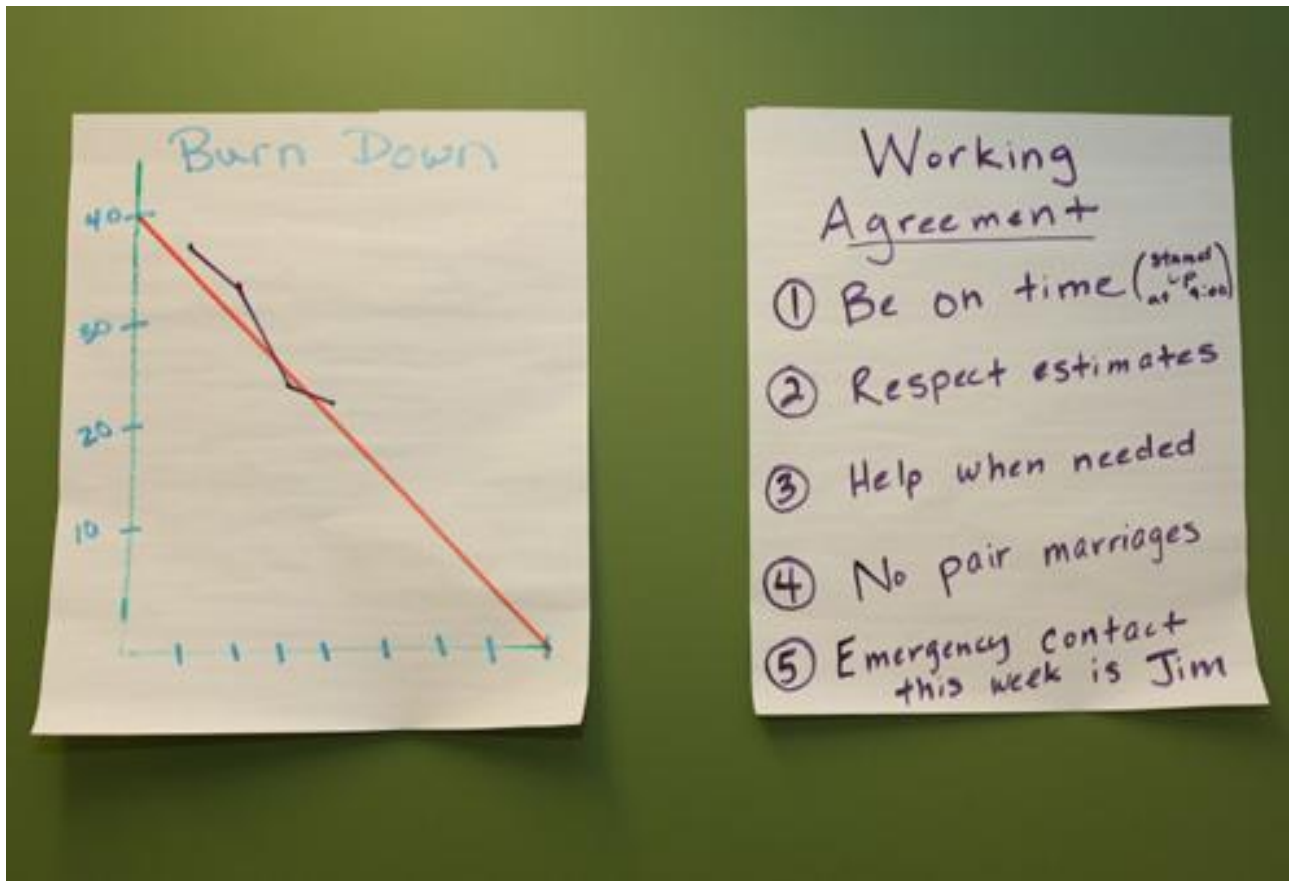 Burn Down
40
30
20
10
Working
Agreement
① Be on time (stand
up
at 9:00)
② Respect estimates
③ Help when needed
④ No pair marriages
⑤ Emergency contact
this week is Jim